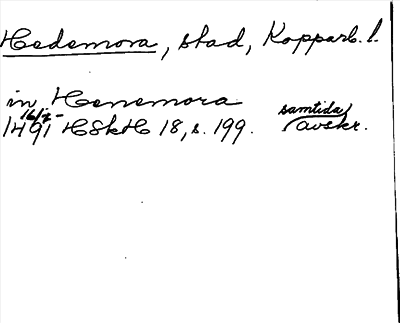 Hedemora, stad, Kopparb. l.
in Henemora
16/2
1491 HSkH 18, s. 199. samtida avskr.